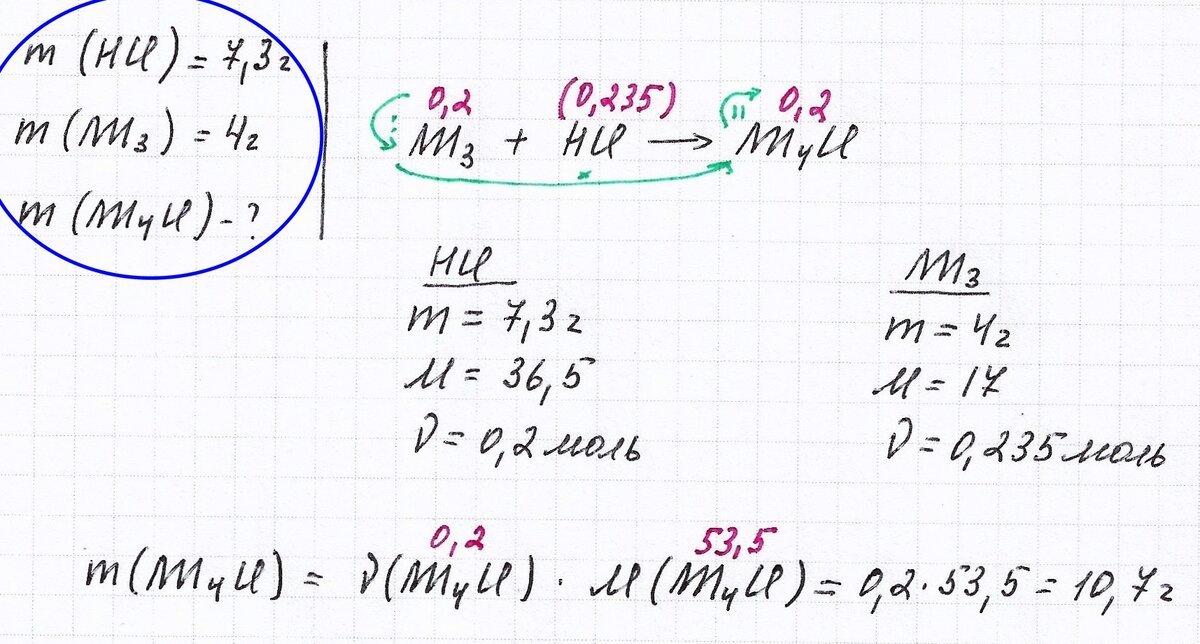 m (HCl) = 7,3г
m (NH₃) = 4г
m (NH₄Cl) - ?
0,2 (0,235) 0,2
NH₃ + HCl → NH₄Cl
HCl
m = 7,3г
M = 36,5
ν = 0,2 моль
NH₃
m = 4г
M = 17
ν = 0,235 моль
0,2 53,5
m (NH₄Cl) = ν(NH₄Cl) · M (NH₄Cl) = 0,2·53,5 = 10,7г